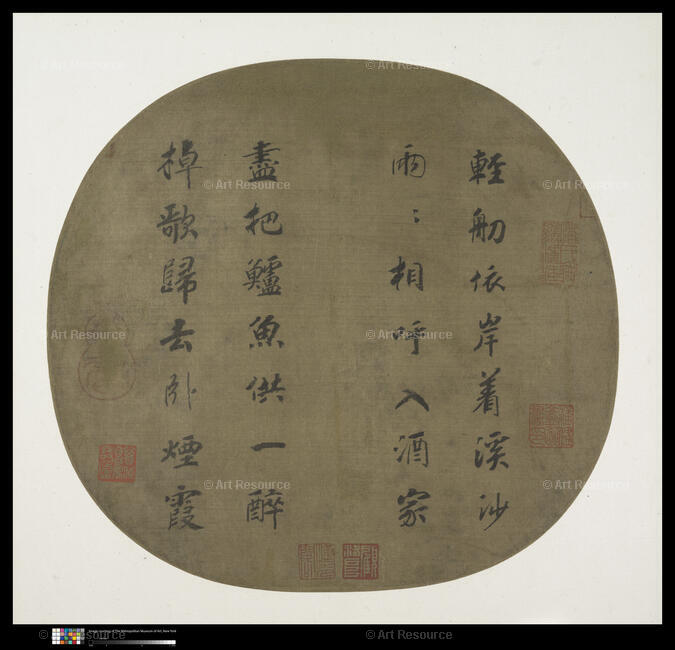 © Art Resource
© Art Resource
輕舠依岸着溪沙
兩〻相呼入酒家
盡把鱸魚供一醉
棹歌歸去臥煙霞
© Art Resource
© Art Resource
© Art Resource
© Art Resource
© Art Resource
© Art Resource
© Art Resource
© Art Resource